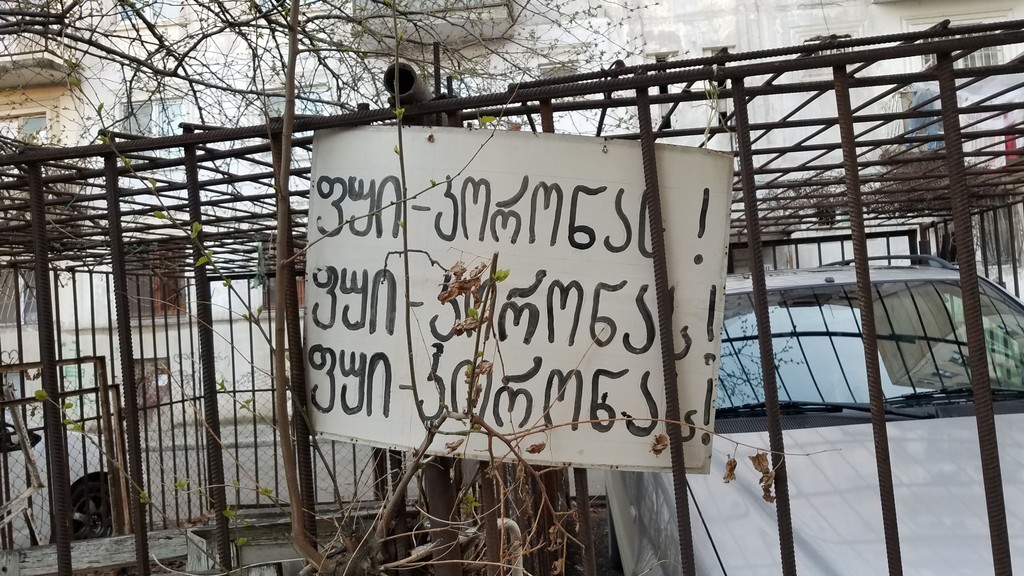 ფუი-კორონას!
ფუი-კორონას!
ფუი-კორონას!